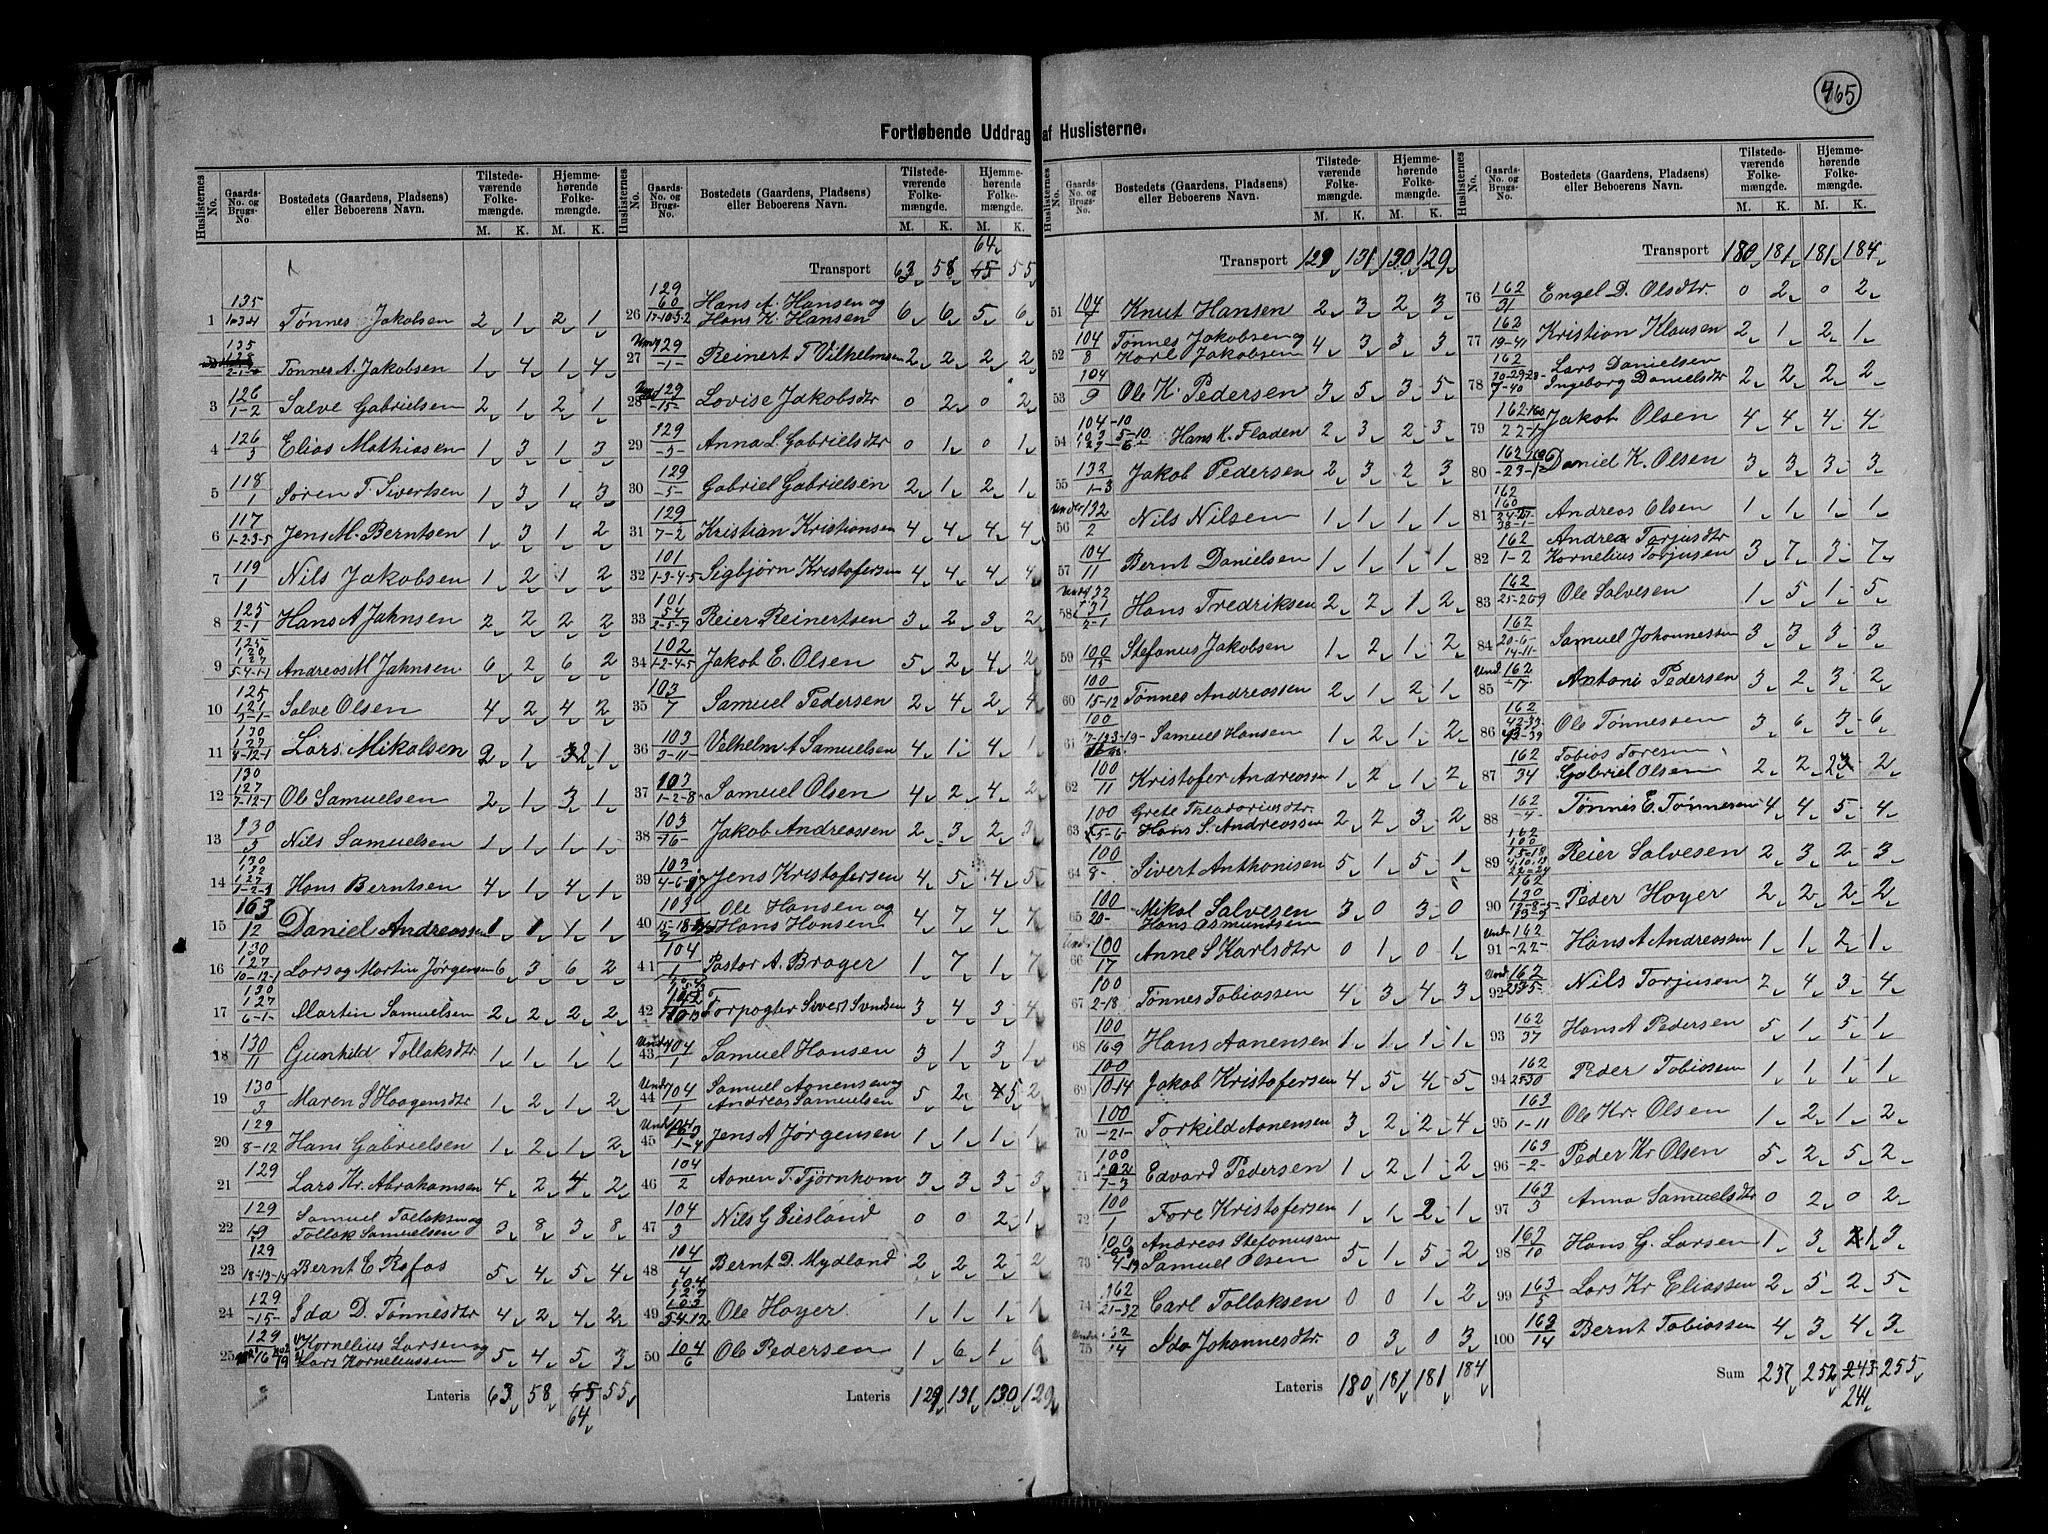 465
Fortløbende Uddrag af Huslisterne.
Huslisternes No. Gaards-No. og Brugs-No. Bostedets (Gaardens, Pladsens) eller Beboerens Navn. Tilstedeværende Folkemængde. Hjemmehørende Folkemængde. M. K. M. K.
1 135 Tønnes Jakobsen 2 1 2 1
135 Tønnes A. Jakobsen 1 4 1 4
3 126/1-2 Salve Gabrielsen 2 1 2 1
4 126/3 Elias Mathiasen 1 3 1 3
5 118/1 Søren T Sivertsen 1 3 1 3
6 117/1-2-3-5 Jens M. Berntsen 1 3 1 2
7 119/1 Nils Jakobsen 1 2 1 2
8 125/2-1 Hans A Jahnsen 2 2 2 2
9 125 120 127/5-4-1-1 Andreas M Jahnsen 6 2 6 2
10 125 121/3-1- Salve Olsen 4 2 4 2
11 130 127/8-12-1 Lars Mikalsen 2 1 2 1
12 130 127/7-12-1 Ole Samuelsen 2 1 3 1
13 130/5 Nils Samuelsen 1 1 1 1
14 130 132 127/1-2-3 Hans Berntsen 4 1 4 1
15 163/12 Daniel Andreassen 1 1 1 1
16 130 127/10-12-1 Lars og Martin Jørgensen 6 3 6 2
17 130 127/6-1- Martin Samuelsen 2 2 2 2
18 130/11 Gunhild Tollaksdtr 1 1 1 1
19 130/3 Maren S Haagensdtr 1 2 1 2
20 129/8-12 Hans Gabrielsen 1 2 1 2
21 129 Lars Kr. Abrahamsen 4 2 4 2
22 129/1-9 Samuel Tollaksen og Tollak Samuelsen 3 8 3 8
23 129/18-13-14 Bernt E Rafos 5 4 5 4
24 129/-15- Ida D. Tønnesdtr 4 2 4 2
25 129 Kornelius Larsen og Lars Korneliussen 5 4 5 3
Lateris 63 58 65 55
64
Huslisternes No. Gaards-No. og Brugs-No. Bostedets (Gaardens, Pladsens) eller Beboerens Navn. Tilstedeværende Folkemængde. Hjemmehørende Folkemængde. M. K. M. K.
64
Transport 63 58 65 55
26 129 60/17-10-3-2 Hans A. Hansen og Hans K. Hansen 6 6 5 6
27 129/-1- Reinert T Vilhelmsen 2 2 2 2
28 129/-15- Lovise Jakobsdtr 0 2 0 2
29 129/-5- Anna L Gabrielsdtr 0 1 0 1
30 129/-5- Gabriel Gabrielsen 2 1 2 1
31 129/7-2 Kristian Kristiansen 4 4 4 4
32 101/1-3-4-5 Sigbjørn Kristofersen 4 4 4 4
33 101 54/2-5-7 Reier Reinertsen 3 2 3 2
34 102/1-2-4-5 Jakob E. Olsen 5 2 4 2
35 103/7 Samuel Pedersen 2 4 2 4
36 103/3-11 Vilhelm A Samuelsen 4 1 4 1
37 103/1-2-8 Samuel Olsen 4 2 4 2
38 103/-16- Jakob Andreassen 2 3 2 3
39 103/4-6- Jens Kristofersen 4 5 4 5
40 103 Ole Hansen og Hans Hansen 4 7 4 7
41 104/1 Pastor A. Brager 1 7 1 7
42 Forpagter Sivert Svendsen 3 4 3 4
43 Under 104/1 Samuel Hansen 3 1 3 1
44 Under 104/1 Samuel Aanensen og Andreas Samuelsen 5 2 5 2
45 1-4 Jens A Jørgensen 1 1 1 1
46 104/2 Aanen T. Tjørnhom 3 3 3 3
47 104/3 Nils G Eiesland 0 0 2 1
48 104/4 Bernt D. Mydland 2 2 2 2
49 104 127 103/5-4-12 Ole Høyer 1 1 1 1
50 104/6 Ole Pedersen 1 6 1 6
Lateris 129 131 130 129
Huslisternes No. Gaards-No. og Brugs-No. Bostedets (Gaardens, Pladsens) eller Beboerens Navn. Tilstedeværende Folkemængde. Hjemmehørende Folkemængde. M. K. M. K.
Transport 129 131 130 129
51 104 Knut Hansen 2 3 2 3
52 104/8 Tønnes Jakobsen og Karl Jakobsen 4 3 3 3
53 104/9 Ole K. Pedersen 3 5 3 5
54 104-10 Hans K. Fladen 2 3 2 3
55 132/1-3 Jakob Pedersen 2 3 2 3
56 Under 132/2 Nils Nilsen 1 1 1 1
57 104/11 Bernt Danielsen 1 1 1 1
58 132 131/2-1 Hans Fredriksen 2 2 1 2
59 100/15 Stefanus Jakobsen 1 2 1 2
60 100/15-12 Tønnes Andreassen 2 1 2 1
61 100 Samuel Hansen 1 2 1 2
62 100/11 Kristofer Andreassen 1 2 1 2
63 100/5-6 Grete Theadoriusdtr. Hans S. Andreassen 2 2 3 2
64 100/8- Sivert Anthonisen 5 1 5 1
65 100/20- Mikal Salvesen Hans Asmundsen 3 0 3 0
66 Und. 100/17 Anne S Karlsdtr 0 1 0 1
67 100/2-18 Tønnes Tobiassen 4 3 4 3
68 100/169 Hans Aanensen 1 1 1 1
69 100/10-14 Jakob Kristofersen 4 5 4 5
70 100/-21- Torkild Aanensen 3 2 2 4
71 100 102/7-3 Edvard Pedersen 1 2 1 2
72 100/1 Tore Kristofersen 1 1 2 1
73 100 Andreas Stefanussen Samuel Olsen 5 1 5 2
74 162/21-32 Carl Tollaksen 0 0 1 2
75 Under 162/14 Ida Johannesdtr. 0 3 0 3
Lateris 180 181 181 184
Huslisternes No. Gaards-No. og Brugs-No. Bostedets (Gaardens, Pladsens) eller Beboerens Navn. Tilstedeværende Folkemængde. Hjemmehørende Folkemængde. M. K. M. K.
Transport 180 181 181 184
76 162/31 Engel D. Olsdtr. 0 2 0 2
77 162/19-41 Kristian Klausen 2 1 2 1
78 162/30-29-28-7-40 Lars Danielsen Ingeborg Danielsdtr 2 2 2 2
79 162 160/22-1 Jakob Olsen 4 4 4 4
80 162/-23-1 Daniel K. Olsen 3 3 3 3
81 162 160/38-1- Andreas Olsen 1 1 1 1
82 162/1-2 Andrea Torjusdtr Kornelius Torjusen 3 7 3 7
83 162/25-26-9 Ole Salvesen 1 5 1 5
84 162/20-6-14-11 Samuel Johannessen 3 3 3 3
85 Und. 162/-17- Antoni Pedersen 3 2 3 2
86 162 Ole Tønnessen 3 6 3 6
87 162/34 Tobias Toresen Gabriel Olsen 2 2 2 2
88 162/-4- Tønnes E. Tønnesen 4 4 5 4
89 162 100 Reier Salvesen 2 3 2 3
90 162 130/12-8-5- Peder Høyer 2 2 2 2
91 Und. 162/-22- Hans A Andreassen 1 1 2 1
92 Und. 162 Nils Torjusen 2 4 3 4
93 162/37 Hans A Pedersen 5 1 5 1
94 162 Peder Tobiassen 1 1 1 1
95 163/1-11 Ole Kr. Olsen 1 2 1 2
96 163/-2- Peder Kr Olsen 5 2 5 2
97 163/3 Anna Samuelsdtr 0 2 0 2
98 163/10 Hans G. Larsen 1 3 1 3
99 163/5 Lars Kr Eliassen 2 5 2 5
100 163/14 Bernt Tobiassen 4 3 4 3
Sum 237 252 243 255
241